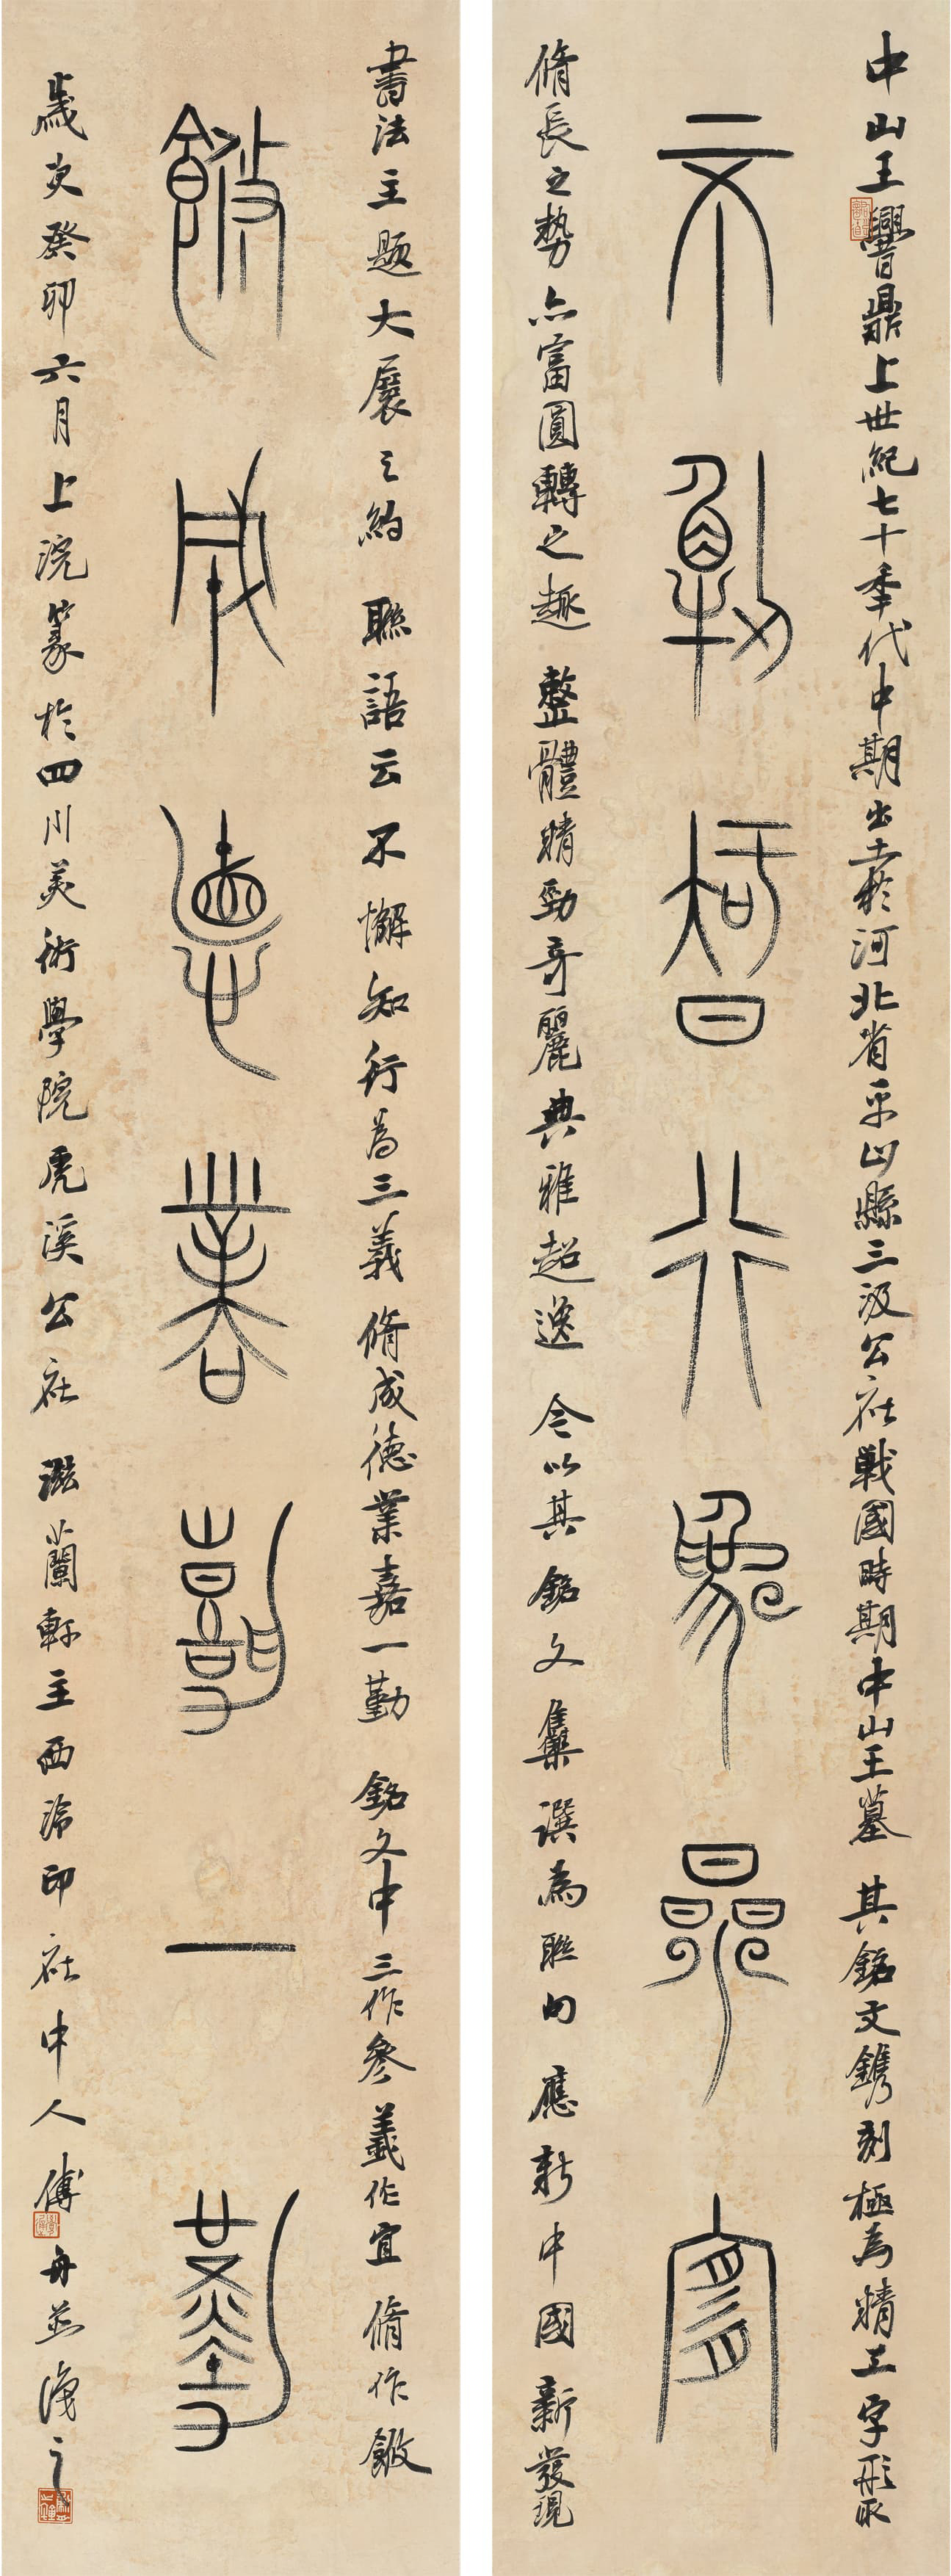 中山王鼎上世紀七十季代中期出土於河北省平山縣三汲公社戰國時期中山王墓 其銘文鐫刻極為精工字形取
不懈知行為三義
脩長之勢亦富圓轉之趣 整體精勁奇麗典雅超逸 今以其銘文集譔為聯句 應新中國新發現
書法主題大展之約 聯語云 不懈知行為三義 脩成德業嘉一勤 銘文中三作參義作宜 脩作
脩成德業嘉一勤
歲次癸卯六月上浣篆於四川美術學院虎溪公社 滋蘭軒主西泠印社中人傅舟並識之